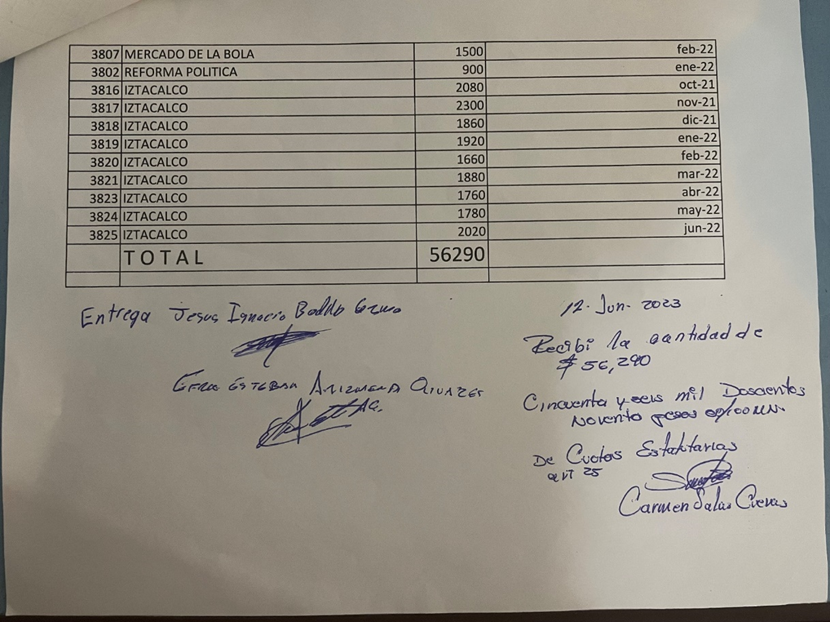 3807 MERCADO DE LA BOLA 1500 feb-22
3802 REFORMA POLITICA 900 ene-22
3816 IZTACALCO 2080 oct-21
3817 IZTACALCO 2300 nov-21
3818 IZTACALCO 1860 dic-21
3819 IZTACALCO 1920 ene-22
3820 IZTACALCO 1660 feb-22
3821 IZTACALCO 1880 mar-22
3823 IZTACALCO 1760 abr-22
3824 IZTACALCO 1780 may-22
3825 IZTACALCO 2020 jun-22
TOTAL 56290
Entrega Jesus Ignacio
12-Jun-2023
Recibi la cantidad de
$56,290
Cincuenta y seis mil Doscientos
Noventa pesos
De Cuotas Estatutarias
art 25
Carmen Salas Cuevas